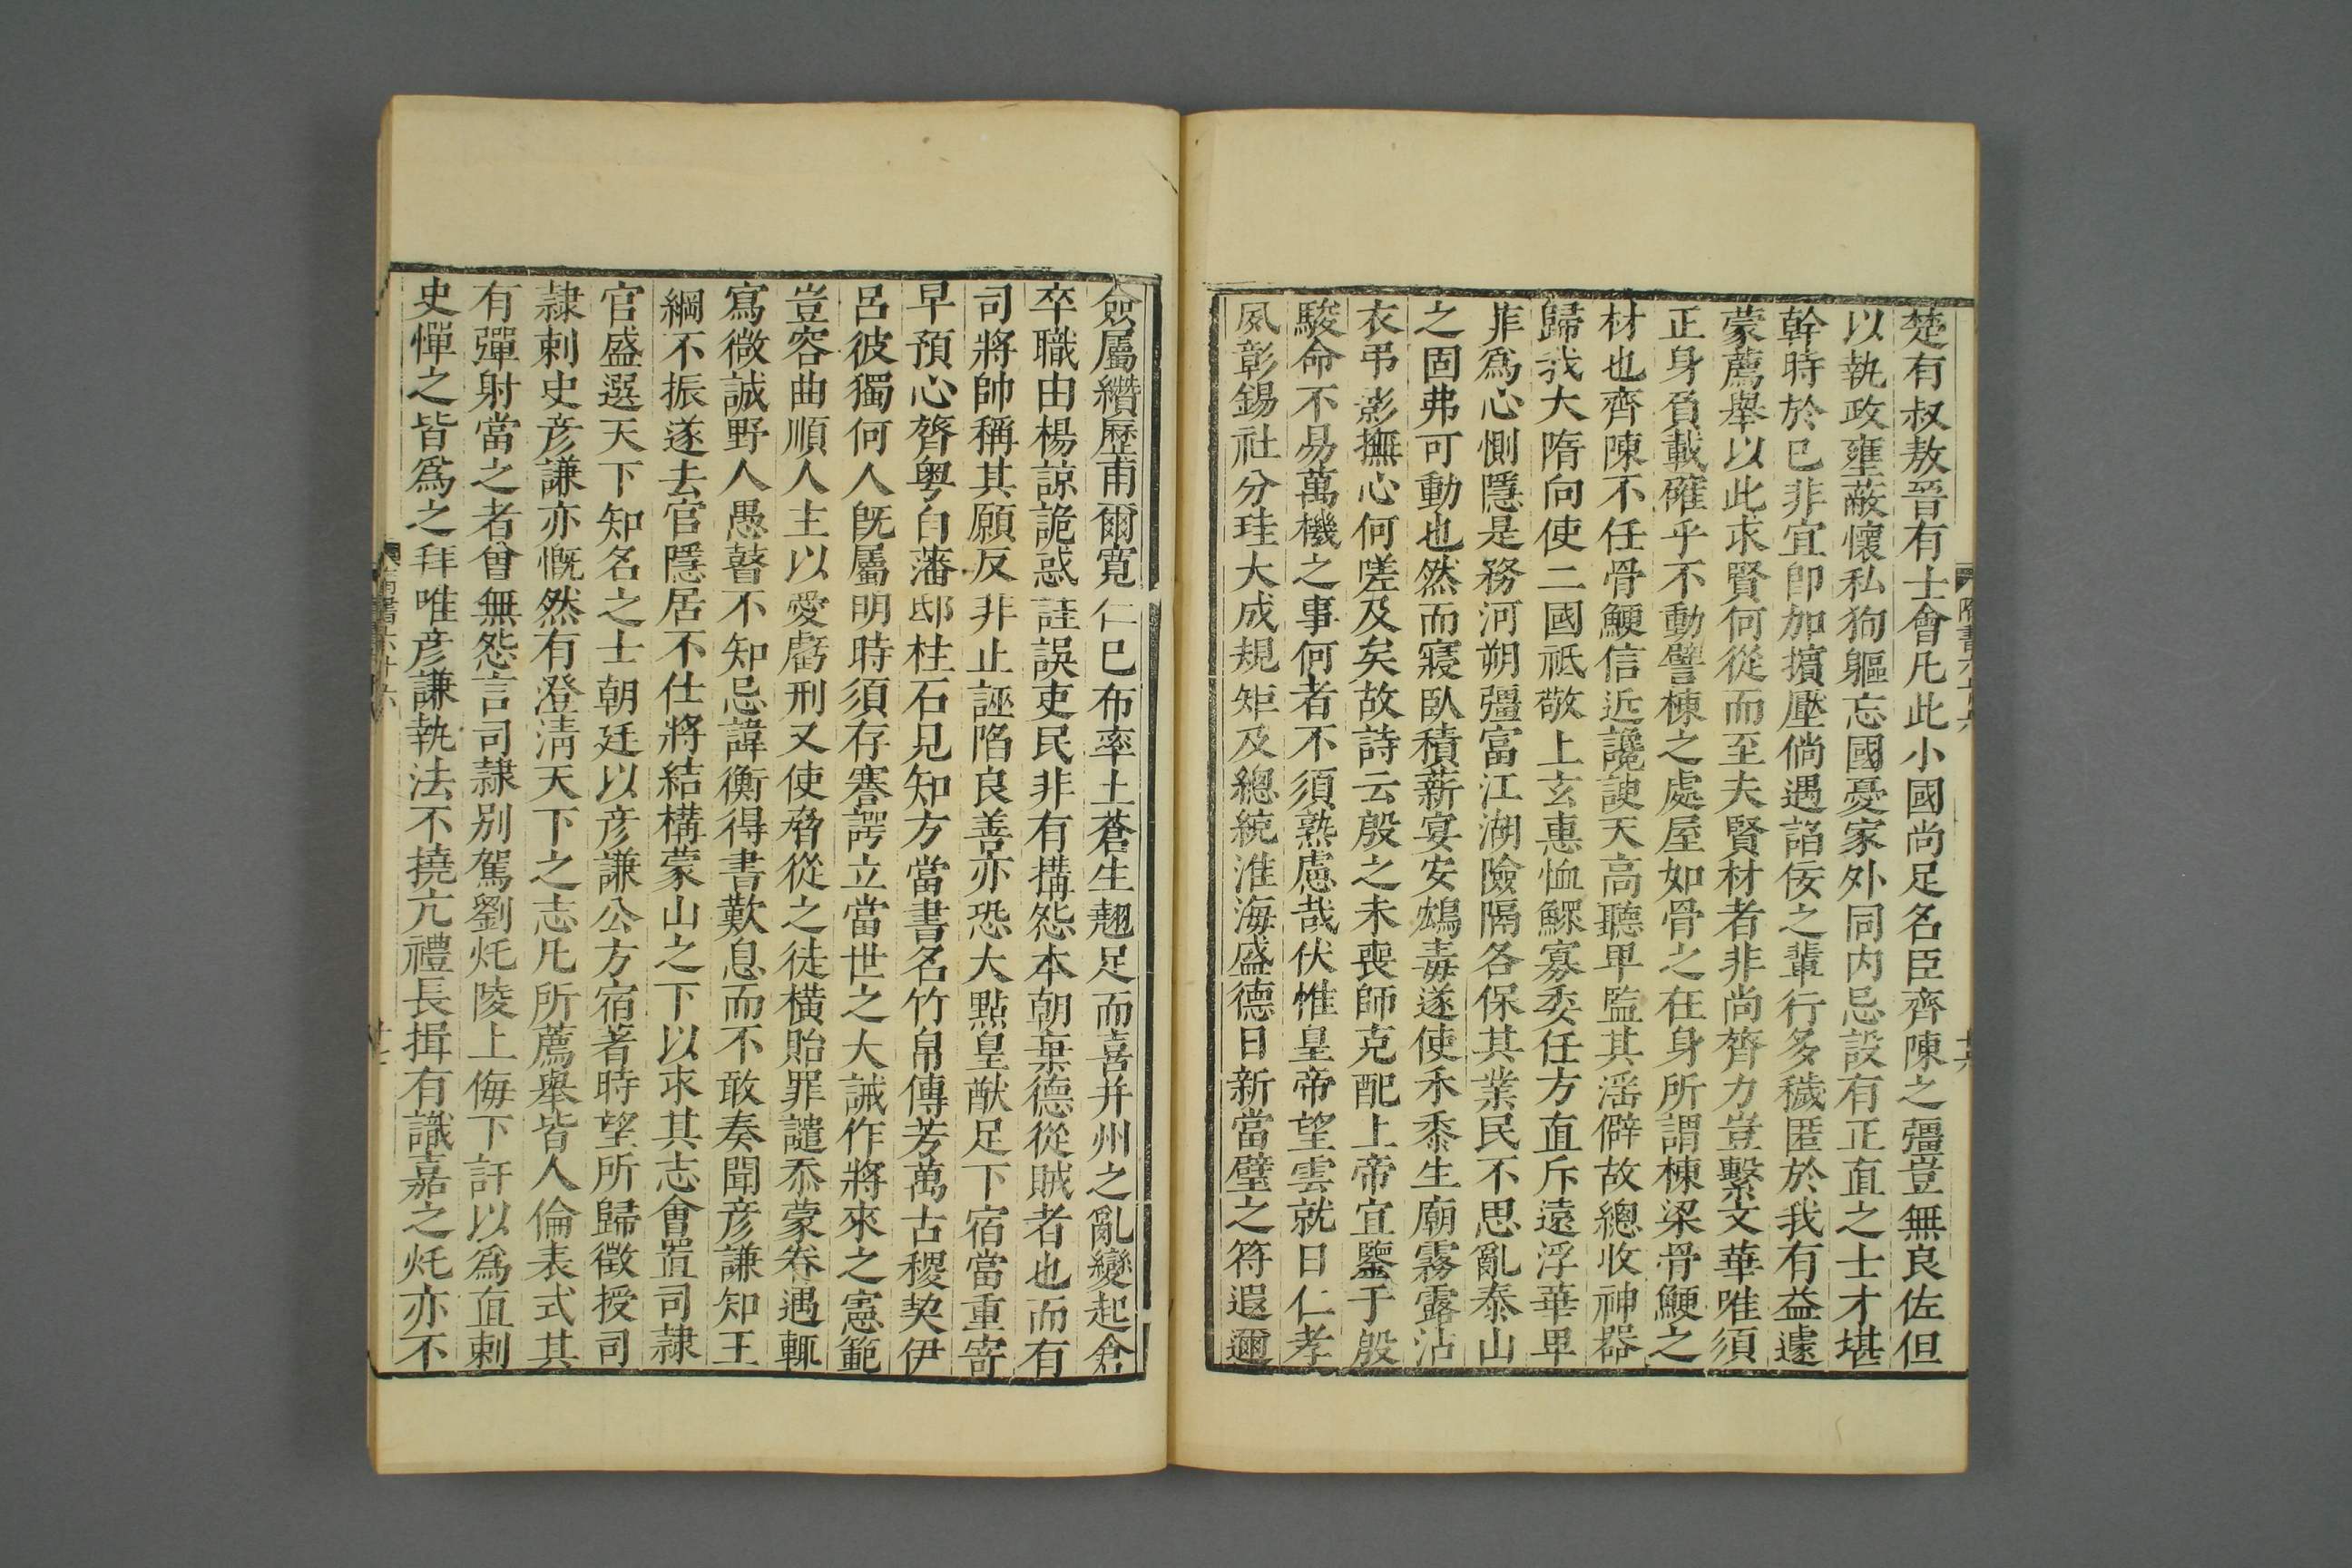 楚有叔敖晉有士會凡此小國尚足名臣齊陳之彊豈無良佐但
以執政壅蔽懷私狥軀忘國憂家外同內忌設有正直之士才堪
幹時於己非宜卽加擯壓倘遇諂佞之輩行多穢匿於我有益遽
蒙薦舉以此求賢何從而至夫賢材者非尚膂力豈繫文華唯須
正身負載確乎不動譬棟之處屋如骨之在身所謂棟梁骨鯁之
材也齊陳不任骨鯁信近讒諛天高聽卑監其淫僻故總收神器
歸我大隋向使二國祗敬上玄惠恤鰥寡委任方直斥遠浮華卑
菲爲心惻隱是務河朔彊富江湖險隔各保其業民不思亂泰山
之固弗可動也然而寢臥積薪宴安鴆毒遂使禾黍生廟霧露沾
衣弔影撫心何嗟及矣故詩云殷之未喪師克配上帝宜鑒于殷
駿命不易萬機之事何者不須熟慮哉伏惟皇帝望雲就日仁孝
夙彰錫社分珪大成規矩及總統淮海盛德日新當璧之符遐邇
僉屬纘歷甫爾寛仁已布率土蒼生翹足而喜并州之亂變起倉
卒職由楊諒詭惑詿誤吏民非有搆怨本朝棄德從賊者也而有
司將帥稱其願反非止誣陷良善亦恐大點皇猷足下宿當重寄
早預心膂粤自藩邸柱石見知方當書名竹帛傳芳萬古稷契伊
呂彼獨何人旣屬明時須存謇諤立當世之大誡作將來之憲範
豈容曲順人主以愛虧刑又使脅從之徒橫貽罪譴忝蒙眷遇輒
寫微誠野人愚瞽不知忌諱衡得書歎息而不敢奏聞彦謙知王
綱不振遂去官隱居不仕將結構蒙山之下以求其志會置司隸
官盛選天下知名之士朝廷以彦謙公方宿著時望所歸徵授司
隸刺史彦謙亦慨然有澄淸天下之志凡所薦舉皆人倫表式其
有彈射當之者曾無怨言司隸別駕劉灹陵上侮下訐以爲直刺
史憚之皆爲之拜唯彦謙執法不撓亢禮長揖有識嘉之灹亦不
隋書六十六